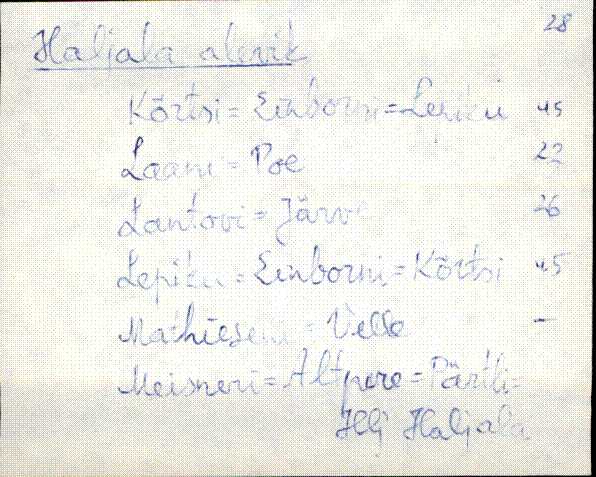 28
Haljala alevik
Kõrtsi = Einborni = Lepiku 45
Laani = Poe 22
Lantovi = Järve 26
Lepiku = Einborni = Kõrtsi 45
Mathieseni = Velse –
Meisneri = Altpere = Pärtli =
Hlj Haljala